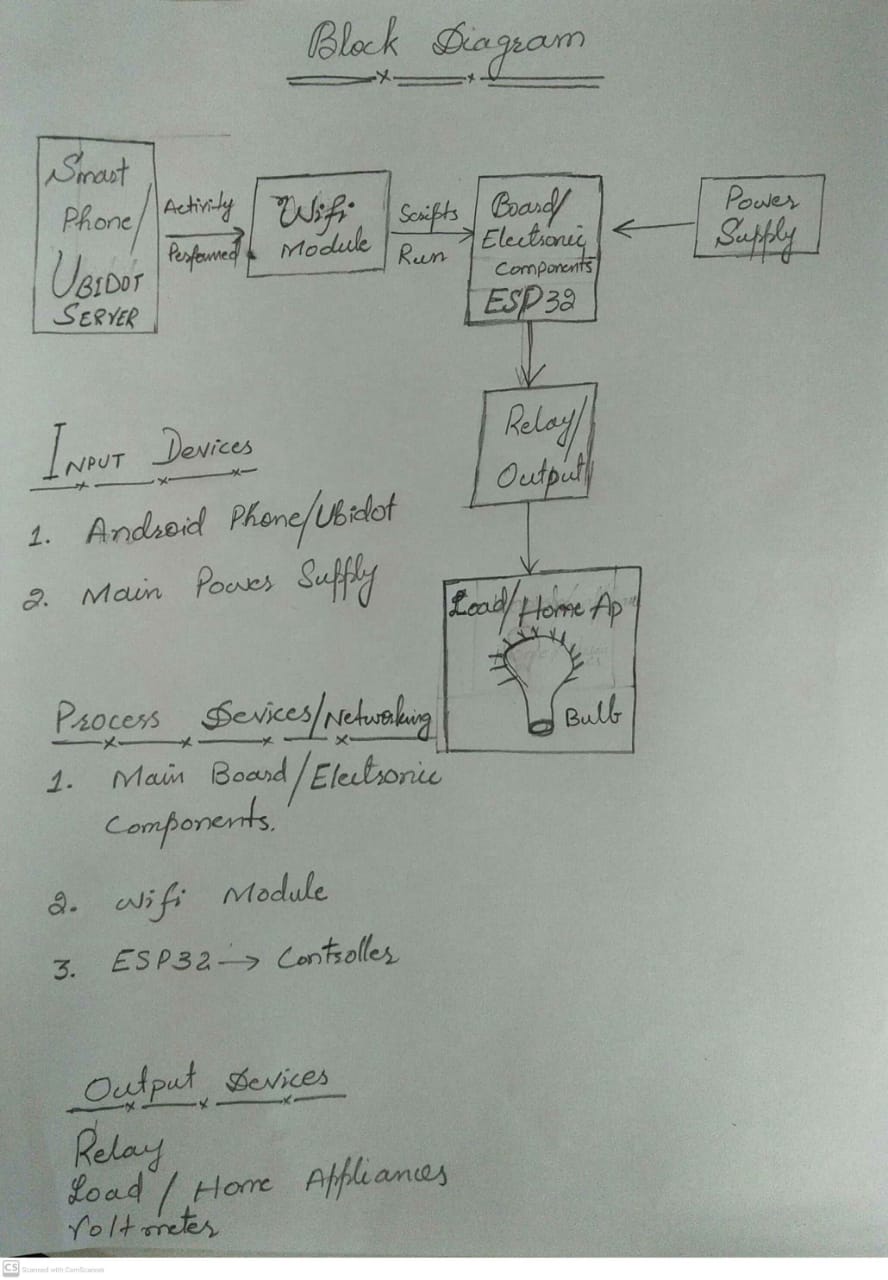 Block Diagram
Smart
Phone/
UBIDOT
SERVER
Activity
Performed
Wifi
Module
Scripts
Run
Board/
Electronic
Components
ESP32
Power
Supply
Relay/
Output
Load/Home Ap
Bulb
INPUT Devices
1. Android Phone/Ubidot
2. Main Power Supply
Process Devices/Networking
1. Main Board/Electronic
Components.
2. Wifi Module
3. ESP32 → Controller
Output Devices
Relay
Load / Home Appliances
Voltmeter
CS Scanned with CamScanner